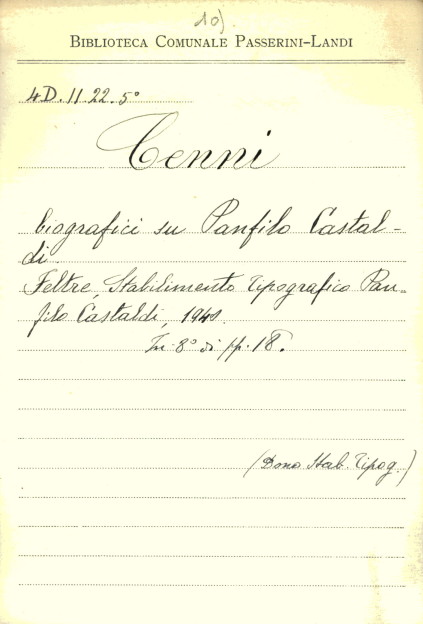 10)
BIBLIOTECA COMUNALE PASSERINI-LANDI
4D. 11. 22. 5°
Cenni
biografici su Panfilo Castal-
di.
Feltre, Stabilimento Tipografico Pan-
filo Castaldi, 1940.
In 8° di pp. 18.
(Dono Stab. Tipog.)